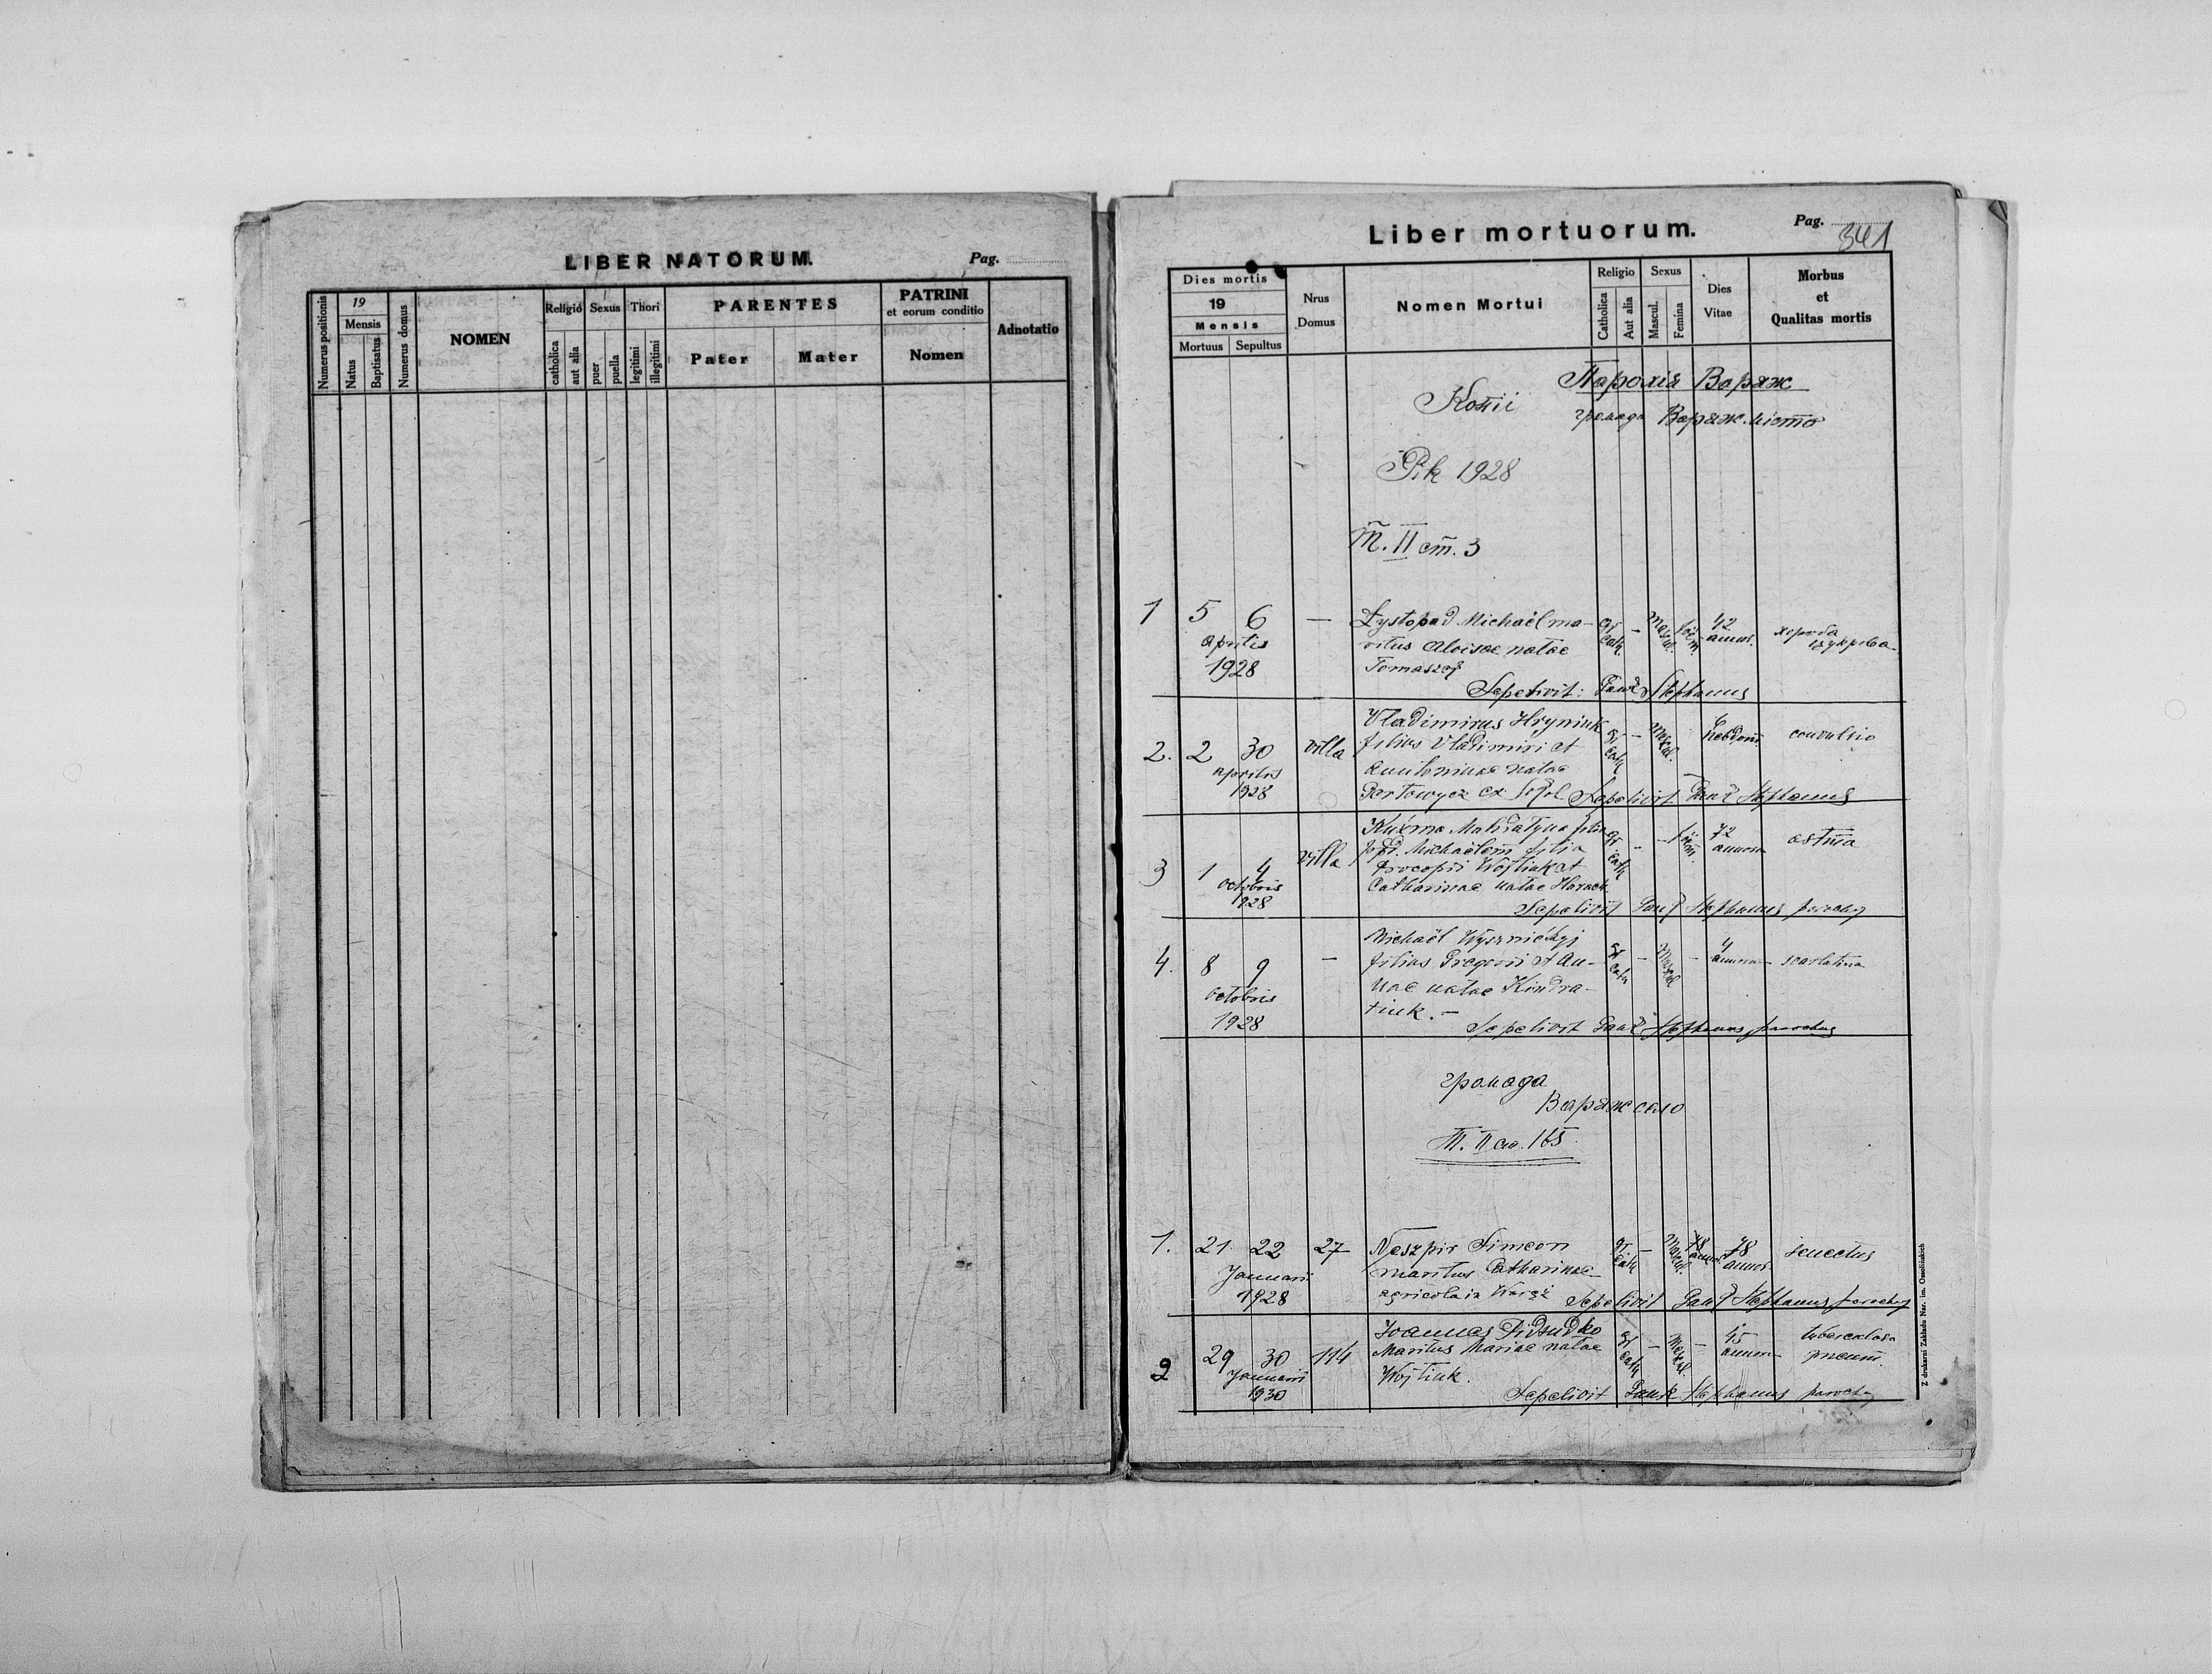 LIBER NATORUM.
Pag.
Numerus positionis
19
Mensis
Natus
Baptisatus
Numerus domus
NOMEN
Religio
catholica
aut alia
Sexus
puer
puella
Thori
legitimi
illegitimi
PARENTES
Pater
Mater
PATRINI
et eorum conditio
Nomen
Adnotatio
Liber mortuorum.
Pag. 341
Dies mortis
19
Mensis
Mortuus
Sepultus
Nrus
Domus
Nomen Mortui
Religio
Catholica
Aut alia
Sexus
Mascul.
Femina
Dies
Vitae
Morbus
et
Qualitas mortis
Парохія Варяж
Копії
громада Варяж місто
Рік 1928
Т. II ст. 3
1 5 6 — Lystopad Michaël ma- gr. cath. — Mascul. 42 annor. хороба цукрова
aprilis ritus Aloisae natae
1928 Tomaszej
Sepelivit: Stephanus
2. 2 30 villa Vladimirus Hryniuk gr. cath. — Mascul. convulsio
aprilis filius Vladimiri et
1928 natae
ex Sepelivit Stephanus
3 1 4 villa filia gr. cath. — foem. 72 annor. astma
octobris Michaëlem filia
1928 Procopii Wojtiuk et
Catharinae natae
Sepelivit Stephanus parochus
4. 8 9 — Michaël Wysznićkyj gr. cath. — Mascul. — 4 annor. scarlatina
octobris filius Gregorii et An-
1928 nae natae Kindra-
tiuk. —
Sepelivit Stephanus parochus
громада
Варяж село
Т. II ст. 165.
1. 21 22 27 Neszpir Simeon gr. cath. — Mascul. 78 annor. 78 annor. senectus
Januarii maritus Catharinae
1928 agricola in Waręż
Sepelivit Stephanus parochus
2 29 30 114 Joannes gr. cath. — Mascul. — 45 annor. tuberculosa
Januarii Maritus Mariae natae pneum.
1930 Wojtiuk.
Sepelivit Stephanus parochus
Z drukarni Zakładu Nar. im. Ossolińskich